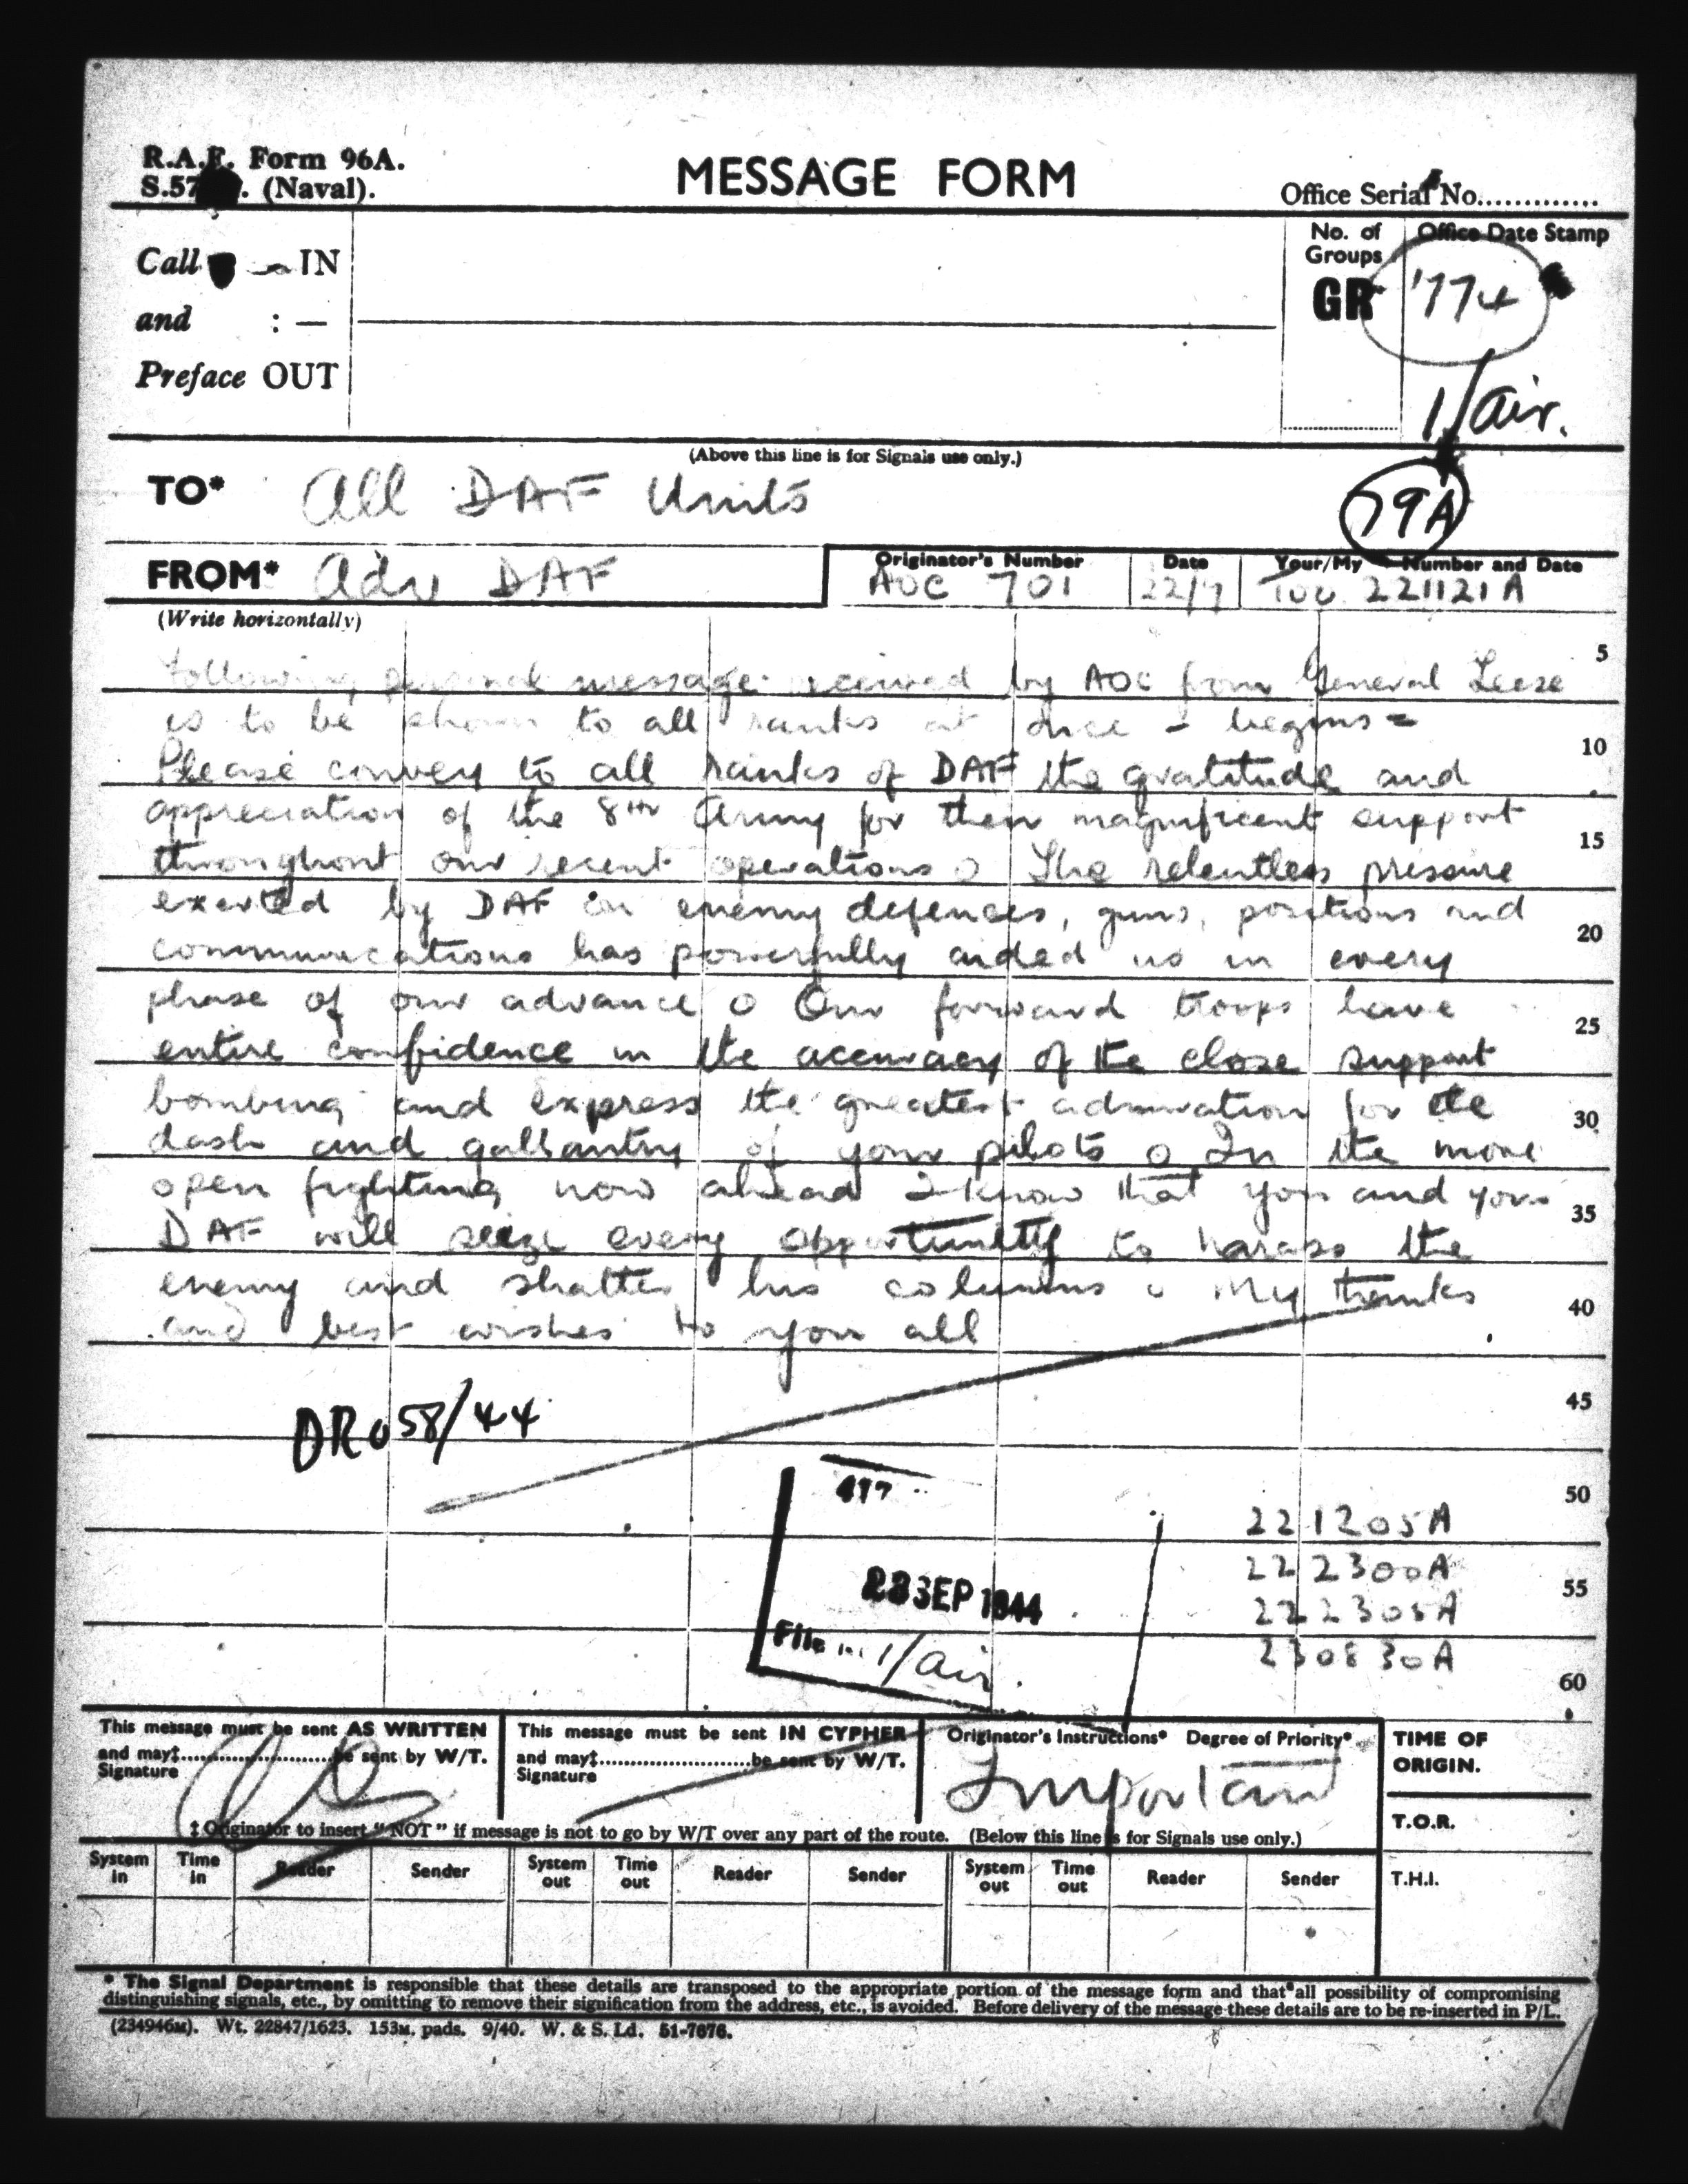 R.A.F. Form 96A.
S.57 . (Naval).
MESSAGE FORM
Office Serial No.............
Call IN
and : —
Preface OUT
No. of
Groups
GR
Office Date Stamp
774
1/Air.
(Above this line is for Signals use only.)
TO* All DAF Units
79A
FROM* Adv DAF
Originator's Number
AOC 701
Date
22/9
Your/My Number and Date
TOO 221121A
(Write horizontally)
Following personal message received by AOC from General Leese
is to be shown to all ranks at once - begins =
Please convey to all ranks of DAF the gratitude and
appreciation of the 8TH Army for their magnificent support
throughout our recent operations o The relentless pressure
exerted by DAF on enemy defences, guns, positions and
communications has powerfully aided us in every
phase of our advance o Our forward troops have
entire confidence in the accuracy of the close support
bombing and express the greatest admiration for the
dash and gallantry of your pilots o In the more
open fighting now ahead I know that you and your
DAF will seize every opportunity to harass the
enemy and shatter his columns o My thanks
and best wishes to you all
5
10
15
20
25
30
35
40
45
50
55
60
DRO 58/44
417
23 SEP 1944
File in 1/Air.
221205A
222300A
222305A
230830A
This message must be sent AS WRITTEN
and may‡..........................be sent by W/T.
Signature
This message must be sent IN CYPHER
and may‡..........................be sent by W/T.
Signature
Originator's Instructions* Degree of Priority*
Important
TIME OF
ORIGIN.
T.O.R.
T.H.I.
‡ Originator to insert "NOT" if message is not to go by W/T over any part of the route. (Below this line is for Signals use only.)
System in Time in Reader Sender System out Time out Reader Sender System out Time out Reader Sender
* The Signal Department is responsible that these details are transposed to the appropriate portion of the message form and that all possibility of compromising
distinguishing signals, etc., by omitting to remove their signification from the address, etc., is avoided. Before delivery of the message these details are to be re-inserted in P/L.
(234946M). Wt. 22847/1623. 153M. pads. 9/40. W. & S. Ld. 51-7676.